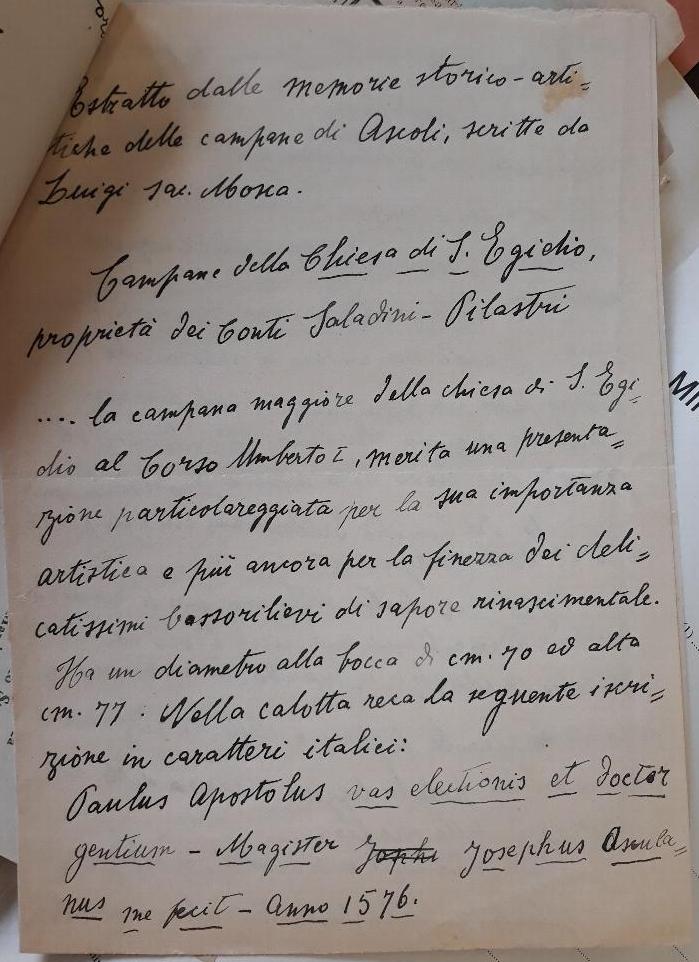 Estratto dalle memorie storico-arti=
tiche delle campane di Ascoli, scritte da
Luigi sac. Mosca.
Campane della Chiesa di S. Egidio,
proprietà dei Conti Saladini-Pilastri
.... la campana maggiore della chiesa di S. Egi=
dio al Corso Umberto I, merita una presenta=
zione particolareggiata per la sua importanza
artistica e più ancora per la finezza dei deli=
catissimi bassorilievi di sapore rinascimentale.
Ha un diametro alla bocca di cm. 70 ed alta
cm. 77. Nella calotta reca la seguente iscri=
zione in caratteri italici:
Paulus Apostolus vas electionis et doctor
gentium - Magister Josephus Ascula=
nus me fecit - Anno 1576.